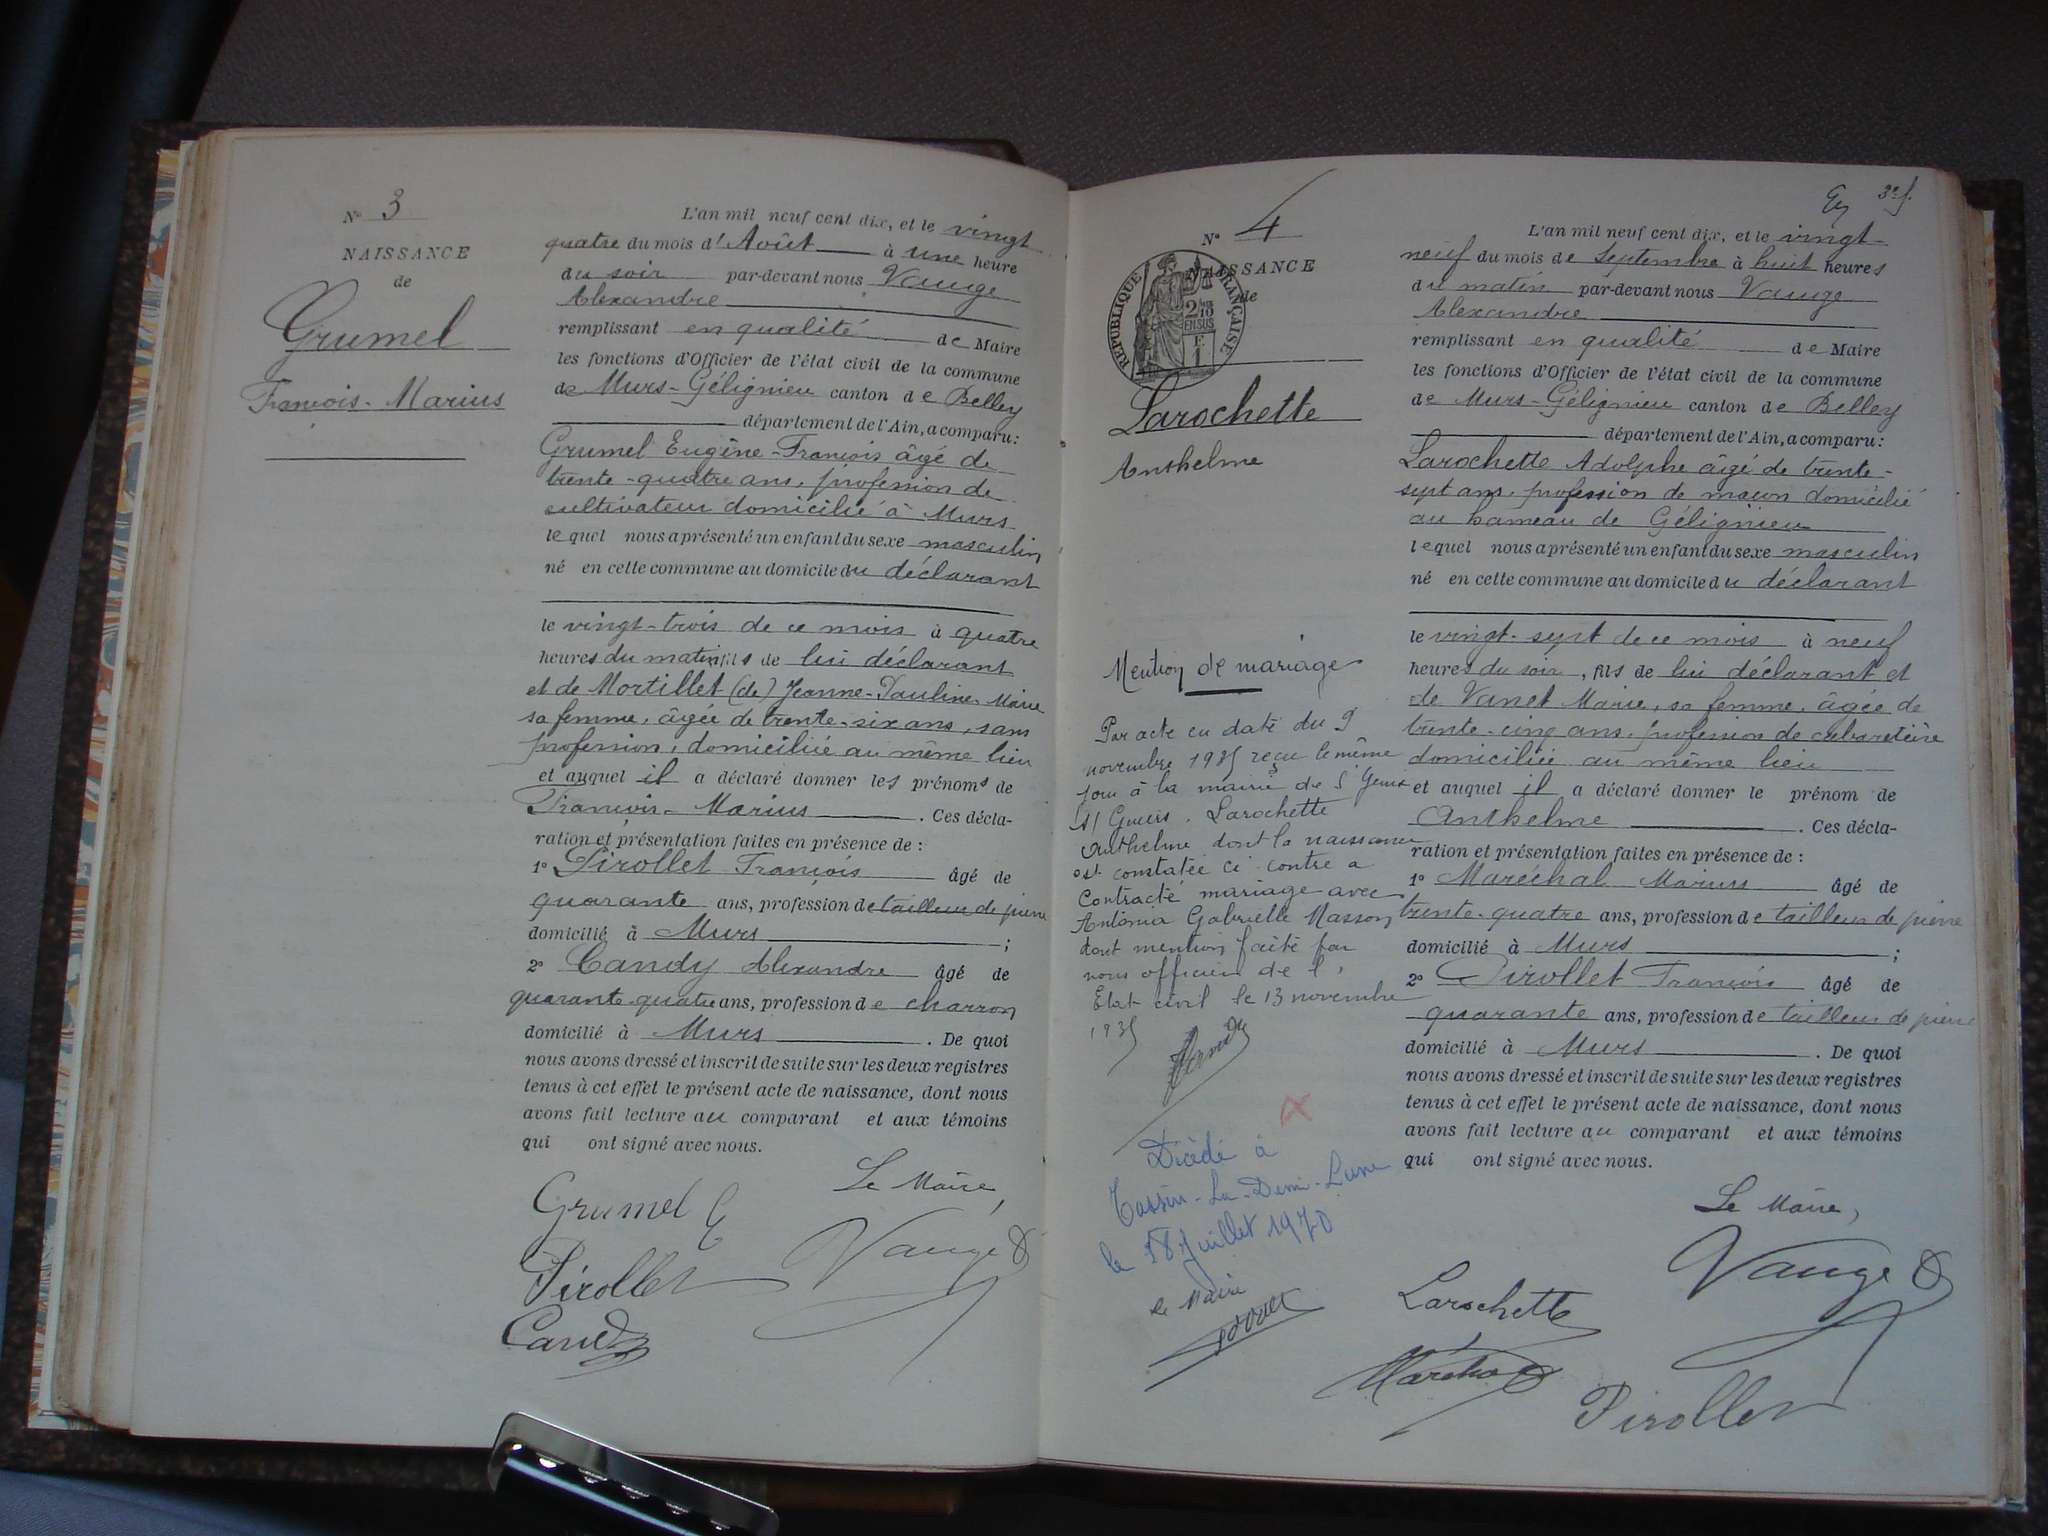 N° 3
NAISSANCE
de
Grumel
François-Marius
L'an mil neuf cent dix, et le vingt
quatre du mois d'Août à une heure
du soir par-devant nous Vauge
Alexandre
remplissant en qualité de Maire
les fonctions d'Officier de l'état civil de la commune
de Murs-Gélignieu canton de Belley
département de l'Ain, a comparu:
Grumel Eugène-François âgé de
trente-quatre ans, profession de
cultivateur domicilié à Murs
lequel nous a présenté un enfant du sexe masculin
né en cette commune au domicile du déclarant
le vingt-trois de ce mois à quatre
heures du matin fils de lui déclarant
et de Mortillet (de) Jeanne-Pauline-Marie
sa femme, âgée de trente-six ans, sans
profession, domiciliée au même lieu
et auquel il a déclaré donner les prénoms de
François-Marius. Ces décla-
ration et présentation faites en présence de :
1° Pirollet François âgé de
quarante ans, profession de tailleur de pierre
domicilié à Murs ;
2° Candy Alexandre âgé de
quarante-quatre ans, profession de charron
domicilié à Murs. De quoi
nous avons dressé et inscrit de suite sur les deux registres
tenus à cet effet le présent acte de naissance, dont nous
avons fait lecture au comparant et aux témoins
qui ont signé avec nous.
Le Maire,
Grumel E
Vauge A
Pirollet
Candy
3e f.
N° 4
NAISSANCE
de
REPUBLIQUE FRANÇAISE
2/10
EN SUS
F.
1
Larochette
Anthelme
Mention de mariage
Par acte en date du 9
novembre 1935 reçu le même
jour à la mairie de St Genix
s/ Guiers, Larochette
Anthelme dont la naissance
est constatée ci contre a
Contracté mariage avec
Antonia Gabrielle Masson
dont mention faite par
nous officier de l'
Etat civil le 13 novembre
1935
Décédé à
Tassin-La-Demi-Lune
le 18 Juillet 1970
le Maire
L'an mil neuf cent dix, et le vingt-
neuf du mois de Septembre à huit heures
du matin par-devant nous Vauge
Alexandre
remplissant en qualité de Maire
les fonctions d'Officier de l'état civil de la commune
de Murs-Gélignieu canton de Belley
département de l'Ain, a comparu:
Larochette Adolphe âgé de trente-
sept ans, profession de maçon domicilié
au hameau de Gélignieu
lequel nous a présenté un enfant du sexe masculin
né en cette commune au domicile du déclarant
le vingt-sept de ce mois à neuf
heures du soir, fils de lui déclarant et
de Vanet Marie, sa femme, âgée de
trente-cinq ans, profession de cabaretière
domiciliée au même lieu
et auquel il a déclaré donner le prénom de
Anthelme. Ces décla-
ration et présentation faites en présence de :
1° Maréchal Marius âgé de
trente-quatre ans, profession de tailleur de pierre
domicilié à Murs ;
2° Pirollet François âgé de
quarante ans, profession de tailleur de pierre
domicilié à Murs. De quoi
nous avons dressé et inscrit de suite sur les deux registres
tenus à cet effet le présent acte de naissance, dont nous
avons fait lecture au comparant et aux témoins
qui ont signé avec nous.
Le Maire,
Vauge A
Larochette
Maréchal
Pirollet